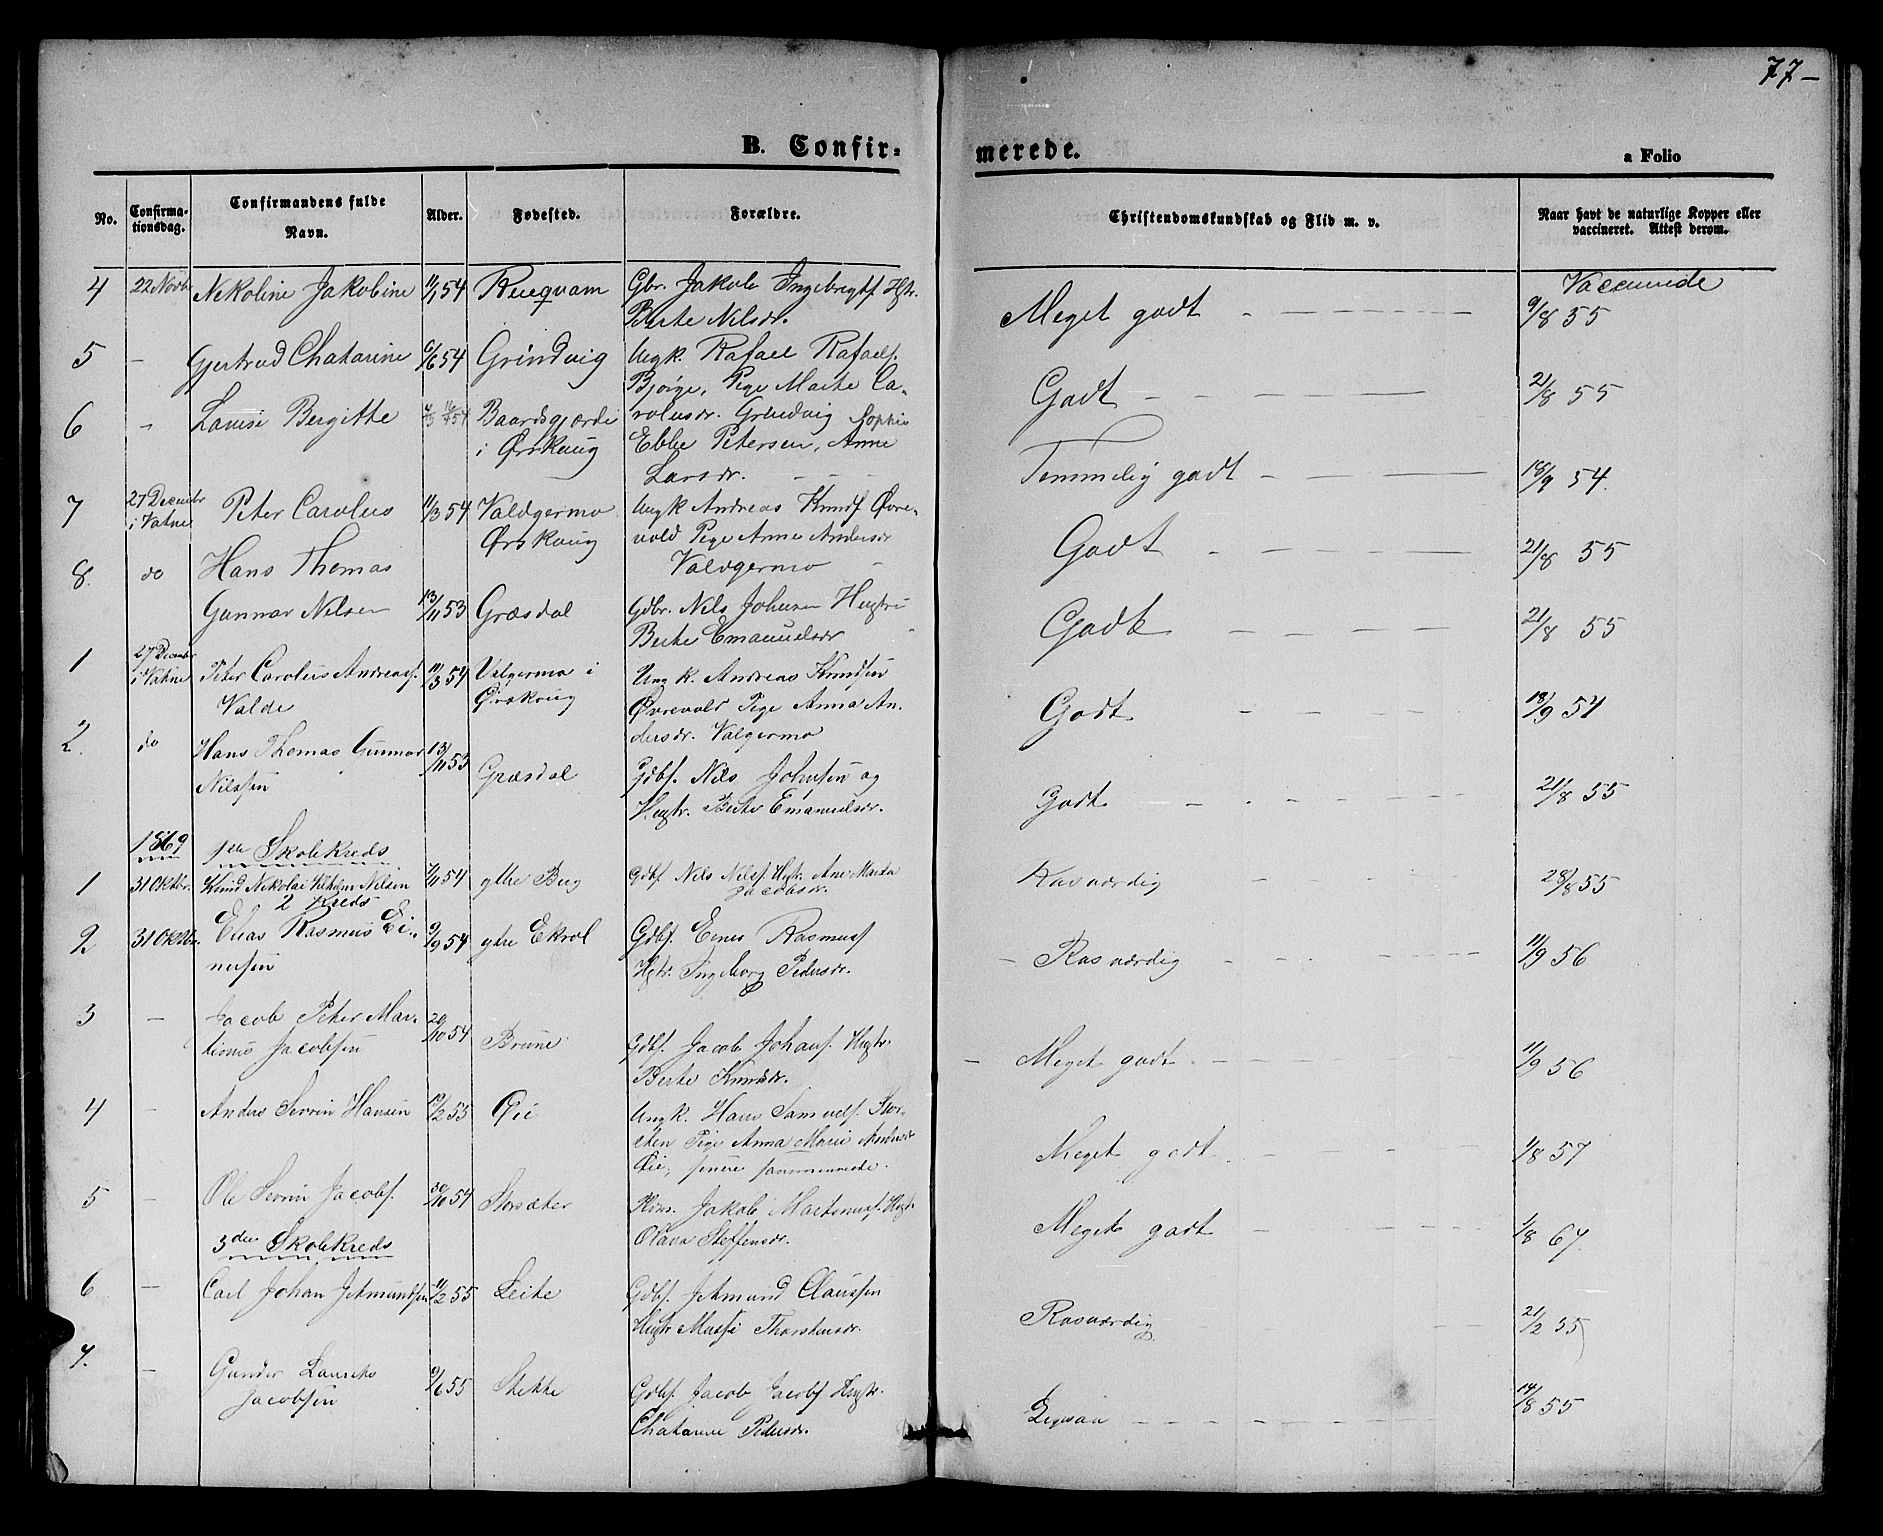 77-
B. Confir-
merede.
a Folio
No.
Confirma-
tionsdag.
Confirmandens fulde
Navn.
Alder.
Fødested.
Forældre.
Christendomskundskab og Flid m. v.
Naar havt de naturlige Kopper eller
vaccineret. Attest derom.
Vaccinerede
4 22 Novbr Nikoline Jakobine 11/1 54 Gbr. Jakob Ingebrigtsf. Hgtr.
Berte Nilsdr.
Meget godt 9/8 55
5 - Gjertrud Chatarine 6/6 54 Grindvig Ungk. Rafael Rafaels.
Bjørge, Pige Marte Ca-
rolusdr. Grindvig
Godt 21/8 55
6 " Lavise Bergitte Baardsgjærde
i Ørskoug
Sophie
Ebbe Petersen, Anne
Larsdr.
Temmelig godt 18/9 54.
7 27 Decembr
i Vatne
Peter Carolus 11/3 54 Valdgermo
Ørskoug
Ungk Andreas Knudsf Øvre-
vold Pige Anne Andersdr
Valdgermo
Godt 21/8 55
8. do Hans Thomas
Gunnar Nilsen 13/11 53 Græsdal Gdbr. Nils Johnsen Hugtru
Berte Emanuelsdr
Godt 21/8 55
1 27 Decembr
i Vatne
Peter Carolus Andreasf.
Valde
11/3 54 Valgermo i
Ørskoug
Ung k. Andreas Knudsen
Øvrevold Pige Anna An-
dersdr. Valgermo
Godt 18/9 54
2. do Hans Thomas Gunnar
Nilssen
13/11 53 Græsdal Gdbf. Nils Johnsen og
Hugtr. Berte Emanuelsdr.
Godt 21/8 55
1869 1ste Skolekreds
1 31 Oktbr. Knud Nikolai Vilhelm Nilsen 7/11 54 ytre Bug Gdbf Nils Nilsf Hgtr. Ane Marta
Jacobsdr.
Rosværdig 28/8 55
2 Kreds
2 31 Oktbr. Elias Rasmus Ei-
nersen
9/9 54 ytre Ekrol Gdbf. Rasmusf
Hgtr. Ingeborg Pedersdr.
Rosværdig 11/9 56
3 - Jacob Peter Mar-
tinus Jacobsen
20/10 54 Brune Gdbf. Jacob Johans. Hugtr.
Berte Knudsdr.
Meget godt 11/9 56
4 - Anders Severin Hansen 19/2 55 Øie Ungk. Hans Samuelsf. Stor-
Pige Anna Marie Andersdr
Øie,
Meget godt 1/8 57
5 - Ole Severin Jacobsf. 30/10 54 Storsæter Jakob Martinusf. Hugtr
Olava Steffensdr.
Meget godt 1/8 67.
3die Skolekreds
6 - Carl Johan Jetmundsen 11/2 55 Leite Gdbf. Jetmund Claussen
Hugtr Thorstensdr.
Rosværdig 21/2 55
7. - Gunder Laurits
Jacobsen
9/6 55 Stette Gdbf. Jacob Jacobsf Hugtr.
Chatarine Pedersdr.
Ligesaa 14/8 55